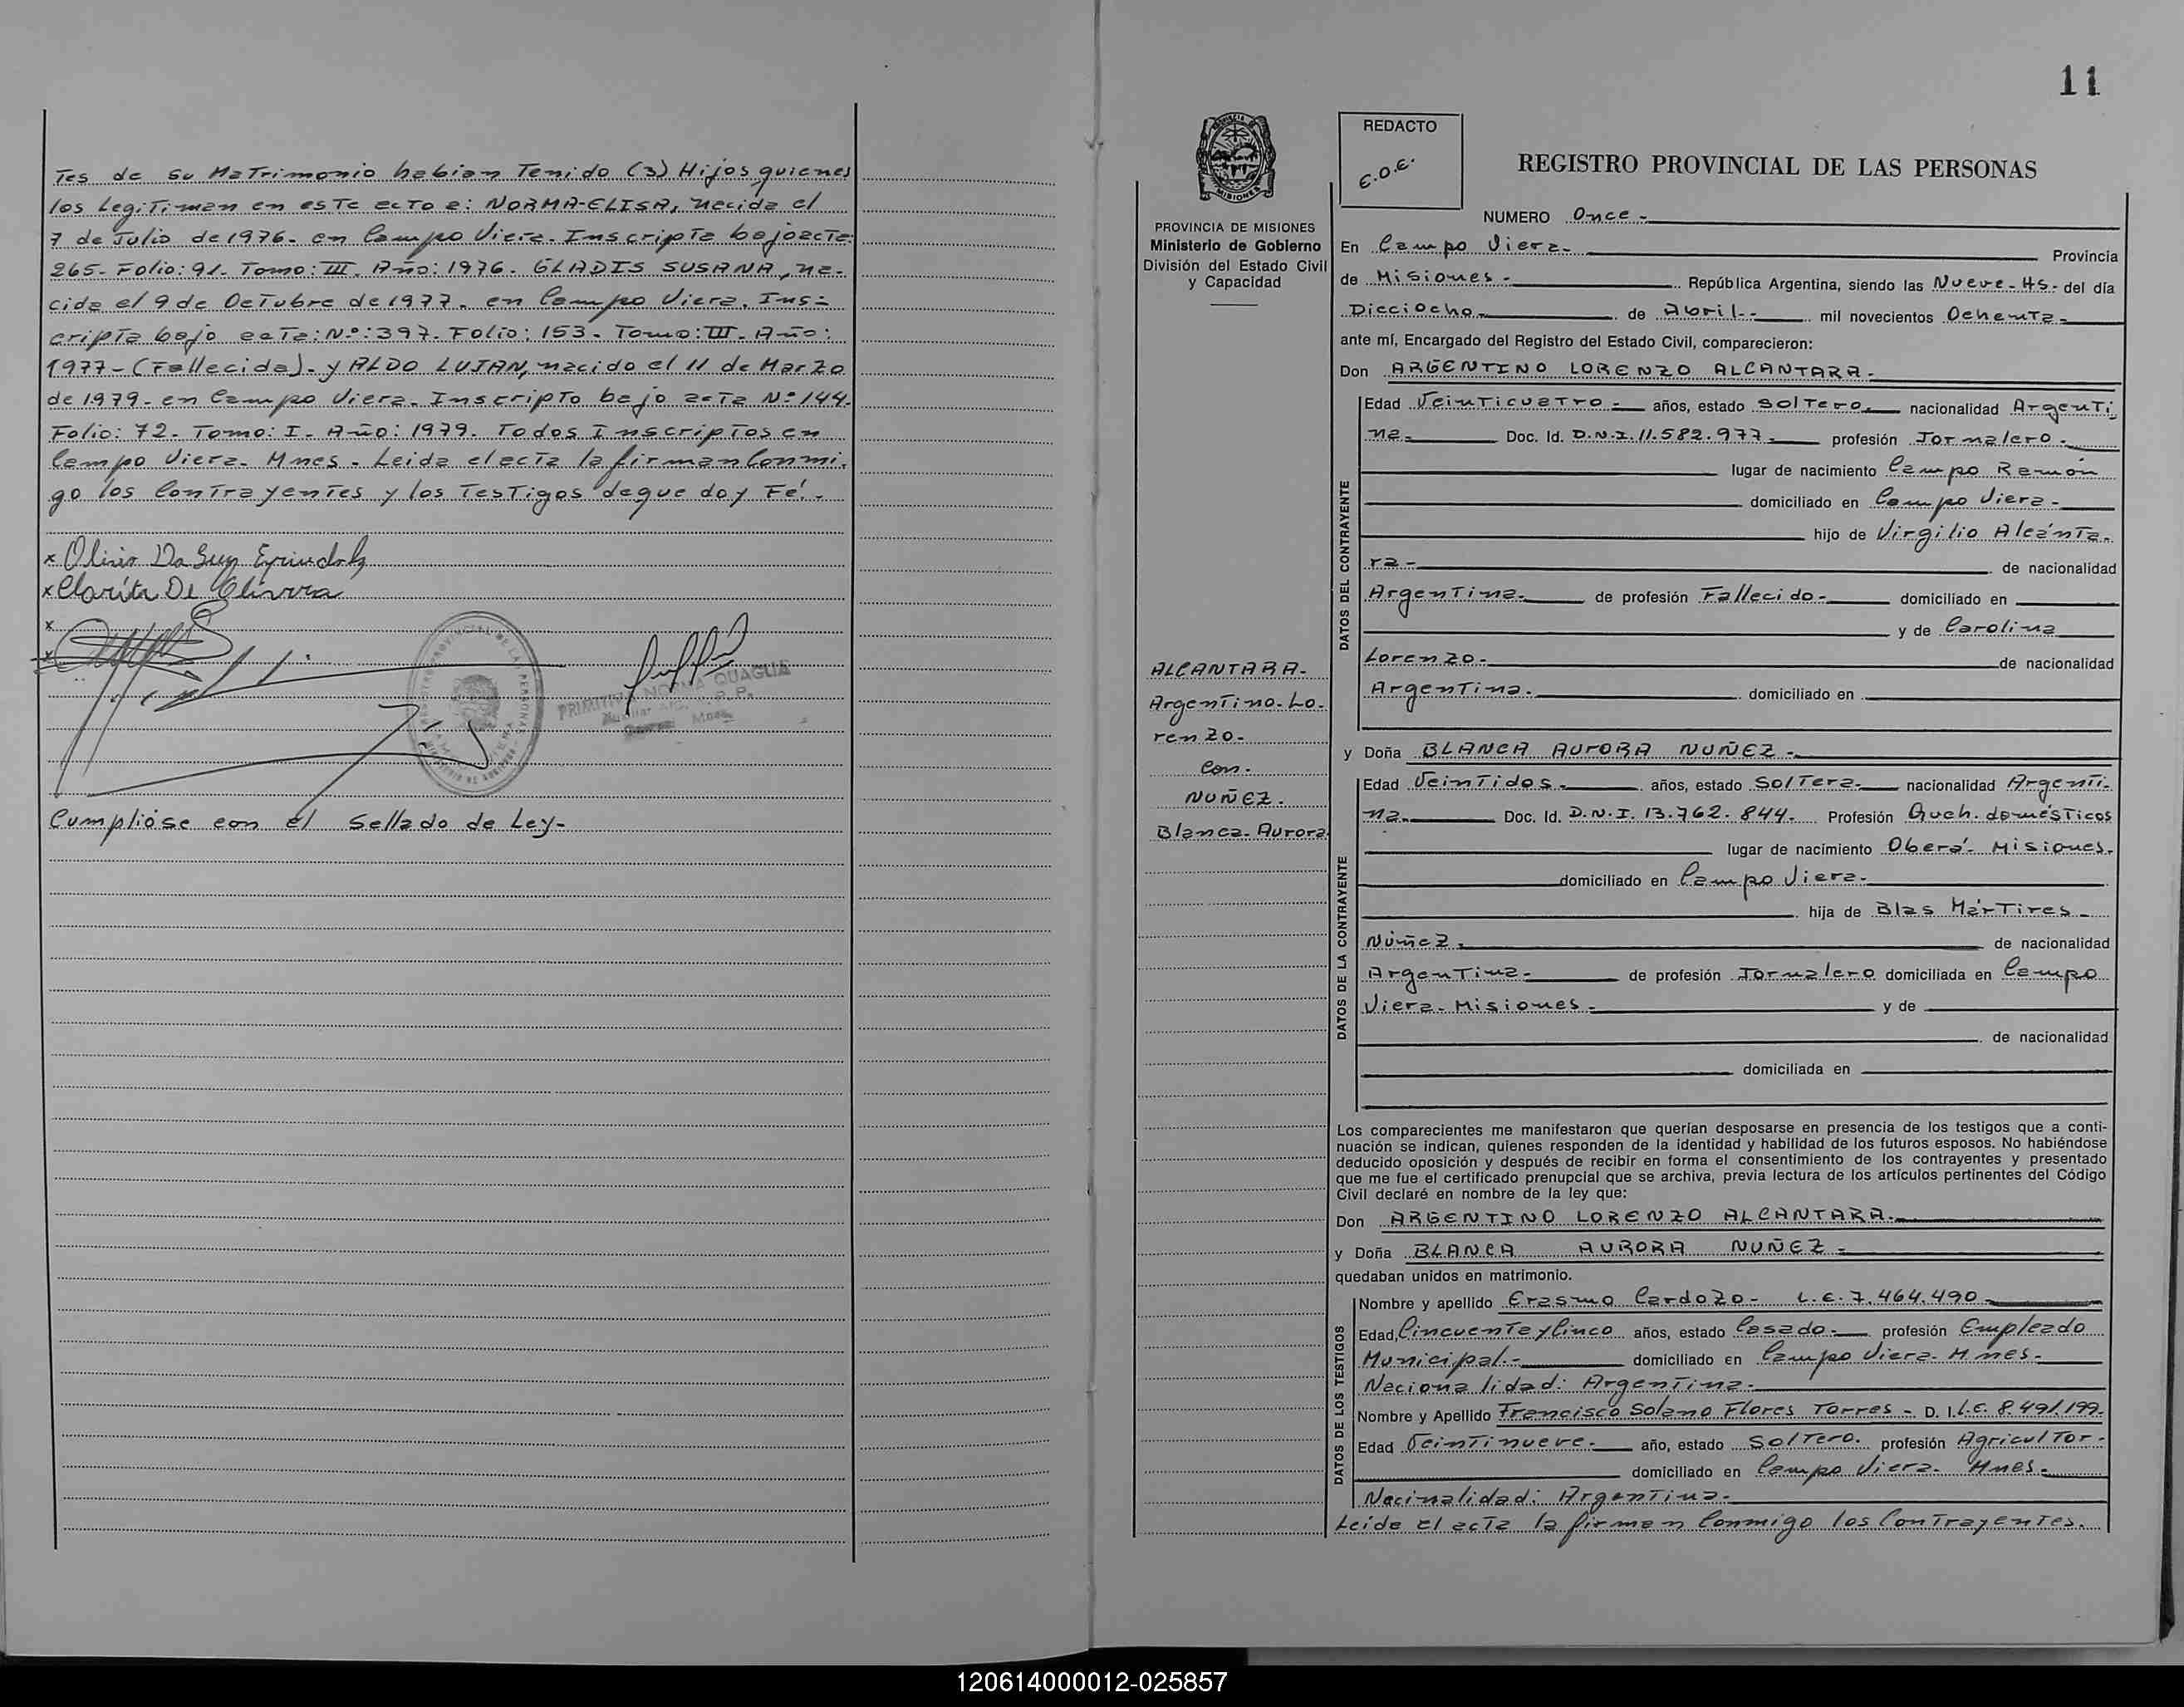 Tes de su MaTrimonio habian Tenido (3) Hijos quienes
los LegiTiman en esTe acTo a: NORMA-ELISA, nacida el
7 de Julio de 1976- en Campo Viera. InscripTa bajo acTa:
265- Folio: 91. Tomo: III. Año: 1976. GLADIS SUSANA, na-
cida el 9 de OcTubre de 1977. en Campo Viera. Ins-
cripTa bajo acTa: Nº: 397. Folio: 153- Tomo: III- Año:
1977- (Fallecida)- y ALDO LUJAN, nacido el 11 de Marzo
de 1979- en Campo Viera. InscripTo bajo acTa Nº 144.
Folio: 72- Tomo: I- Año: 1979. Todos InscripTos en
Campo Viera- Mnes- Leida el acTa la firman Conmi-
go los ConTrayenTes y los TesTigos de que doy Fé!-
x Olirio Da
x Clarita De Olivera
x
x
NORMA QUAGLIA
Cumplióse con el Sellado de Ley-
11
PROVINCIA DE MISIONES
Ministerio de Gobierno
División del Estado Civil
y Capacidad
ALCANTARA-
ArgenTino-Lo-
renzo-
Con-
NUÑEZ.
Blanca-Aurora
REDACTO
E.O.E.
REGISTRO PROVINCIAL DE LAS PERSONAS
NUMERO Once-
En Campo Viera- Provincia
de Misiones- República Argentina, siendo las Nueve-Hs- del día
Dieciocho- de Abril- mil novecientos OchenTa-
ante mí, Encargado del Registro del Estado Civil, comparecieron:
Don ARGENTINO LORENZO ALCANTARA-
DATOS DEL CONTRAYENTE
Edad VeinTicuaTro- años, estado SolTero- nacionalidad ArgenTi-
na- Doc. Id. D.N.I. 11.582.977- profesión Jornalero-
lugar de nacimiento Campo Ramón
domiciliado en Campo Viera-
hijo de Virgilio AlcánTa-
ra- de nacionalidad
ArgenTina- de profesión Fallecido- domiciliado en
y de Carolina
Lorenzo- de nacionalidad
ArgenTina- domiciliado en
y Doña BLANCA AURORA NUÑEZ-
DATOS DE LA CONTRAYENTE
Edad VeinTidos- años, estado SolTera- nacionalidad ArgenTi-
na- Doc. Id. D.N.I. 13.762.844- Profesión Queh. domésTicos
lugar de nacimiento Oberá- Misiones-
domiciliado en Campo Viera-
hija de Blas MárTires-
Núñez- de nacionalidad
ArgenTina- de profesión Jornalero domiciliada en Campo
Viera- Misiones- y de
de nacionalidad
domiciliada en
Los comparecientes me manifestaron que querían desposarse en presencia de los testigos que a conti-
nuación se indican, quienes responden de la identidad y habilidad de los futuros esposos. No habiéndose
deducido oposición y después de recibir en forma el consentimiento de los contrayentes y presentado
que me fue el certificado prenupcial que se archiva, previa lectura de los artículos pertinentes del Código
Civil declaré en nombre de la ley que:
Don ARGENTINO LORENZO ALCANTARA-
y Doña BLANCA AURORA NUÑEZ-
quedaban unidos en matrimonio.
DATOS DE LOS TESTIGOS
Nombre y apellido Erasmo Cardozo- L.E. 7.464.490-
Edad, CincuenTa y Cinco años, estado Casado- profesión Empleado
Municipal- domiciliado en Campo Viera- Mnes-
Nacionalidad: ArgenTina-
Nombre y Apellido Francisco Solano Flores Torres - D. I. L.E. 8.491.199-
Edad VeinTinueve- año, estado SolTero- profesión AgriculTor-
domiciliado en Campo Viera- Mnes-
Nacinalidad: ArgenTina-
Leída el acTa la firman Conmigo los ConTrayenTes-
120614000012-025857